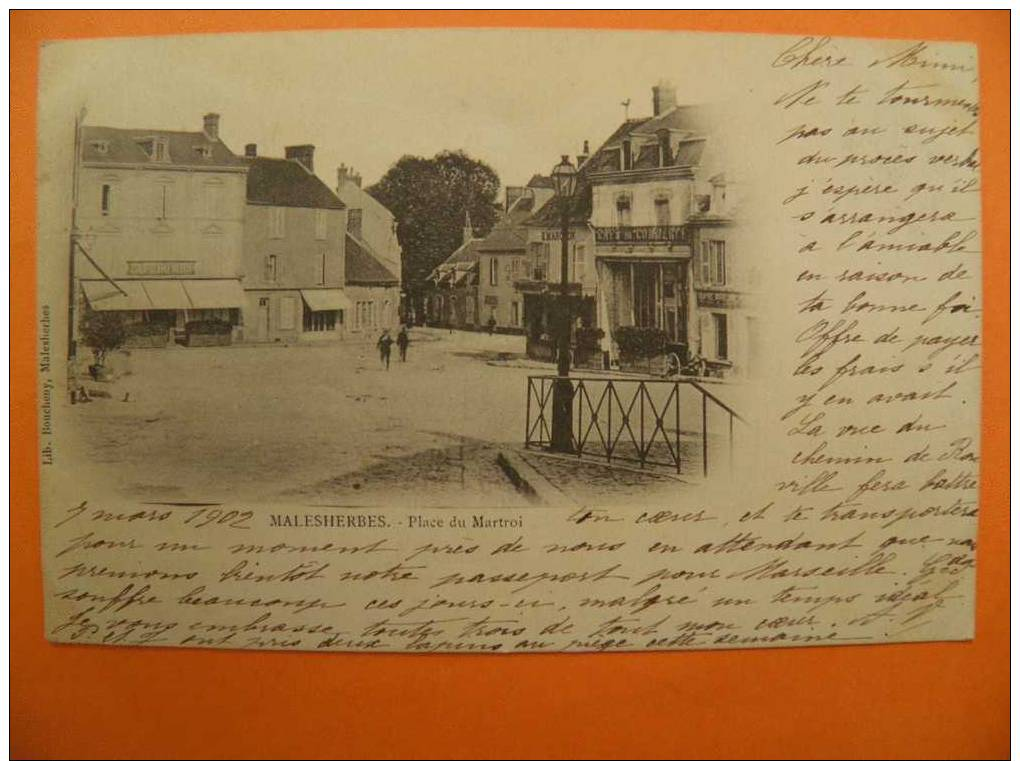 Chère Mimi,
Ne te tourmente
pas au sujet
du procès verbal
j'espère qu'il
s'arrangera
à l'amiable
en raison de
ta bonne foi.
Offre de payer
les frais s'il
y en avait.
La vue du
chemin de Rou
ville fera battre
7 mars 1902 MALESHERBES. - Place du Martroi ton cœur, et te transportera
pour un moment près de nous en attendant que nous
prenions bientôt notre passeport pour Marseille.
souffre beaucoup ces jours-ci, malgré un temps idéal.
Je vous embrasse toutes trois de tout mon cœur.
ont pris deux lapins au piège cette semaine
Lib. Boucheny, Malesherbes